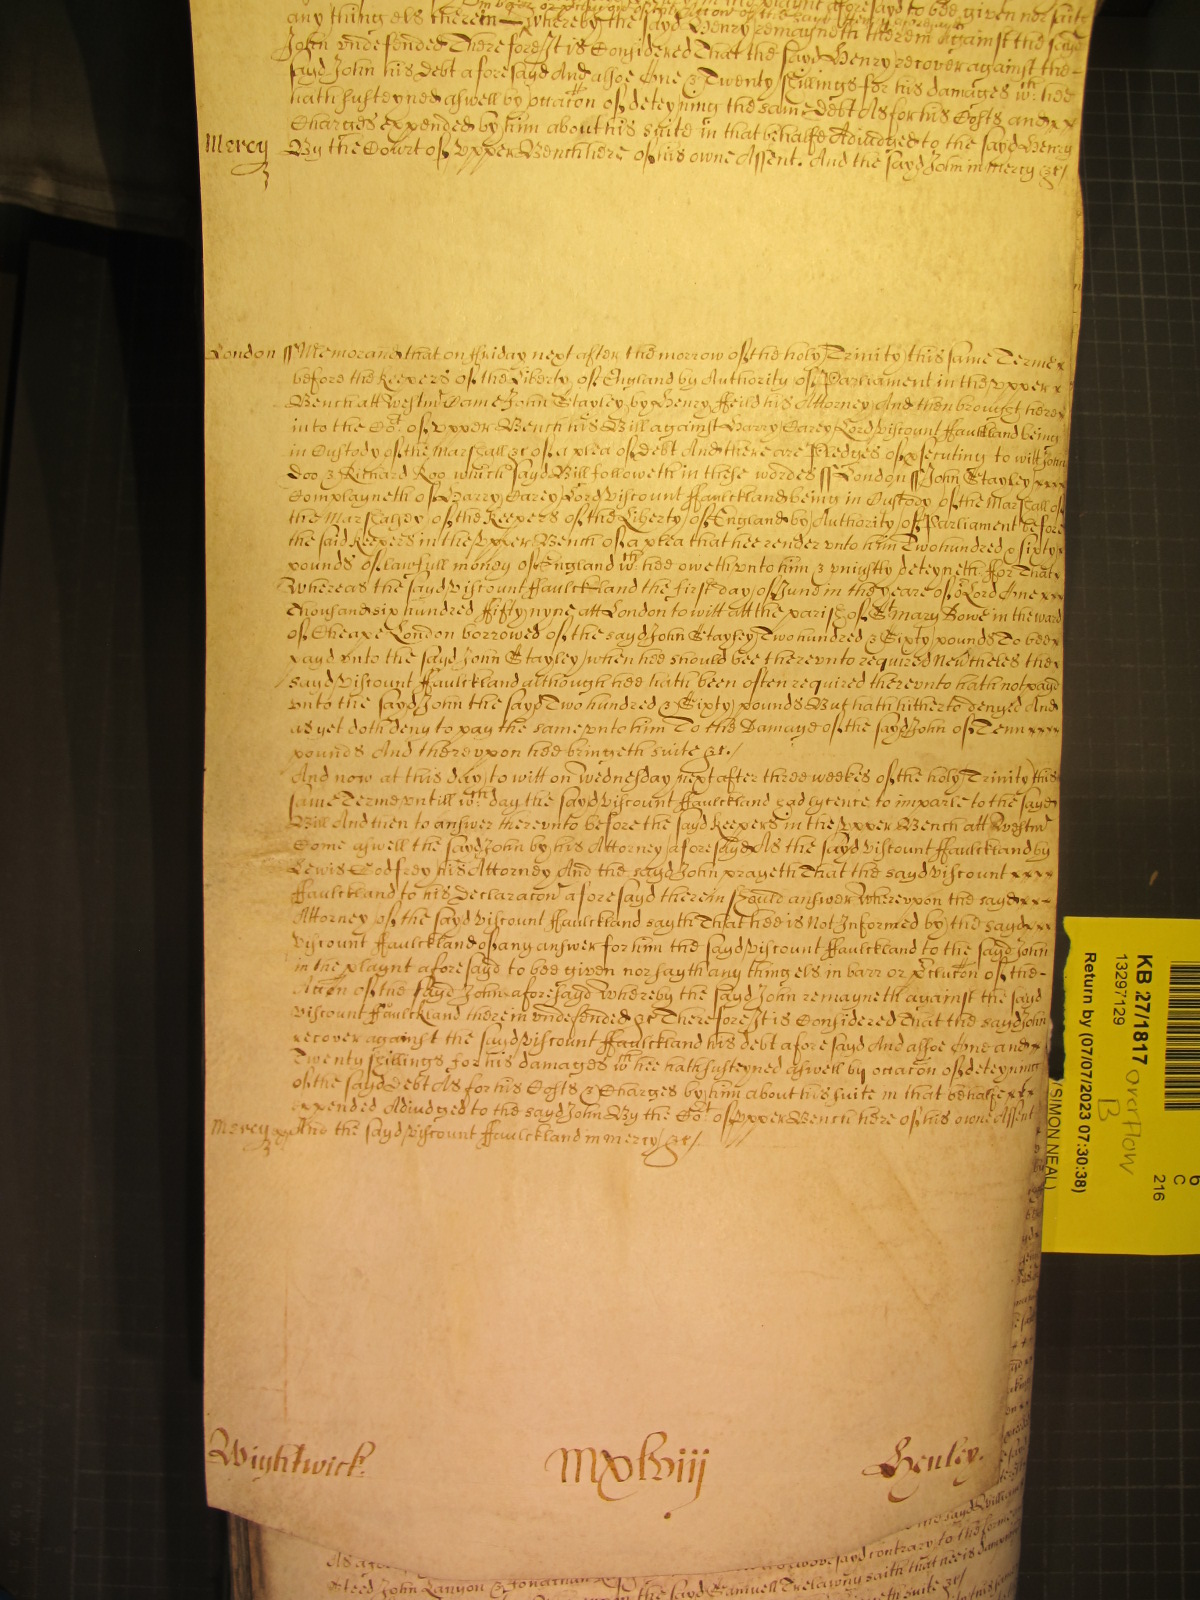 any thing els therein whereby the sayd Henry remayneth therein against the sayd
John vndefended Therefore It is Considered That the sayd Henry recover against the
sayd John his debt aforesayd And alsoe One & Twenty shillings for his damages wch hee
hath susteyned aswell by occacon of deteyning the same debt As for his Costs and xx
Charges expended by him about his suite in that behalfe Adiudged to the sayd Henry
Mercy By the Court of Vpper Bench here of his owne Assent. And the sayd John in mercy &c/
London ss Memorand that on ffriday next after the morrow of the holy Trinity this same Terme x
before the Keepers of the Liberty of England by Authority of Parliament in the vpper x
Bench att Westmr Came John Stayley by Henry ffeild his Attorney And then brought here
into the Cot of vpper Bench his Bill against Harry Carey Lord Viscount ffaulkland being
in Custody of the Marshall &c of a plea of debt And there are Pledges of psecuting to witt John
Doo & Richard Roo which sayd Bill followeth in these wordes ss London ss John Stayley xxx
Complayneth of Harry Carey Lord Viscount ffaulckland being in Custody of the Marshall of
the Marshalsey of the Keepers of the Liberty of England by Authority of Parliament before
the said Keepers in the vpper Bench of a plea that hee render vnto him Two hundred & sixty x
pounds of lawfull money of England wch hee oweth vnto him & vniustly deteyneth ffor That x
Whereas the sayd Viscount ffaulckland the first day of June in the yeare of or Lord One xxx
Thousand six hundred ffifty nyne att London to witt att the parish of St mary Bowe in the ward
of Cheape London borrowed of the sayd John Stayley Two hundred & Sixty pounds To bee x
payd vnto the sayd John Stayley when hee should bee therevnto required Neutheles the x
sayd Viscount ffaulckland although hee hath been often required therevnto hath not payd
vnto the sayd John the sayd Two hundred & Sixty pounds But hath hitherto denyed And
as yet doth deny to pay the same vnto him To the Damage of the sayd John of Tenn xxxx
pounds And therevpon hee bringeth suite &c./
And now at this day to witt on Wednesday next after three weekes of the holy Trinity this
same Terme vntill wch day the sayd Viscount ffaulckland had lycence to imparle to the sayd
Bill And then to answer therevnto before the sayd Keepers in the vpper Bench att Westmr
Come aswell the sayd John by his Attorney aforesayd As the sayd Viscount ffaulckland by
Lewis Godfrey his Attorney And the sayd John prayeth That the sayd Viscount xxxx
ffaulckland to his Declaracon aforesayd therein should answer Wherevpon the sayd xx
Attorney of the sayd Viscount ffaulckland sayth That hee is Not Informed by the sayd xx
Viscount ffaulckland of any answer for him the sayd Viscount ffaulckland to the sayd John
in the playnt aforesayd to bee given nor sayth any thing els in barr or pclucon of the
Accon of the sayd John aforesayd Whereby the sayd John remayneth against the sayd
Viscount ffaulckland therein vndefended &c Therefore It is Considered That the sayd John
recover against the sayd Viscount ffaulckland his debt aforesayd And alsoe One and x
Twenty shillings for his damages wch hee hath susteyned aswell by occacon of deteyning
of the sayd Debt As for his Costs & Charges by him about his suite in that behalfe xxx
expended Adiudged to the sayd John By the Cot of Vpper Bench here of his owne Assent
Mercy And the sayd Viscount ffaulckland in mercy &c/
Wightwick MXLVIII Henley.
the sayd William
aforesayd contrary to the forme
John Lanyon & Jonathan
the sayd Samuell Trelawny saith that hee is
suite &c/
KB 27/1817 overflow
B
13297129
Return by (07/07/2023 07:30:38)
(SIMON NEAL)
216
C
6